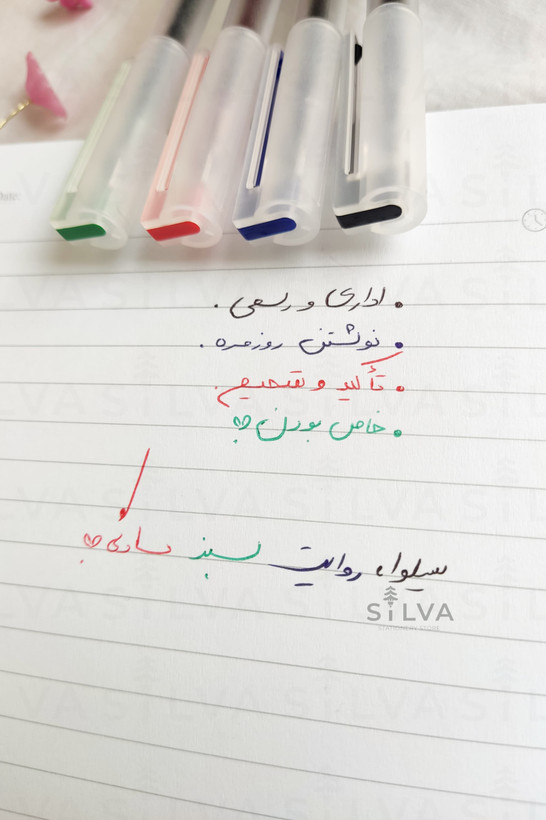 • اداری و رسمی.
• نوشتن روزمره.
• تأکید و تصحیح.
• خاص بودن
سیلوا، روایت سبز سادگی
SiLVA
STATIONERY STORE